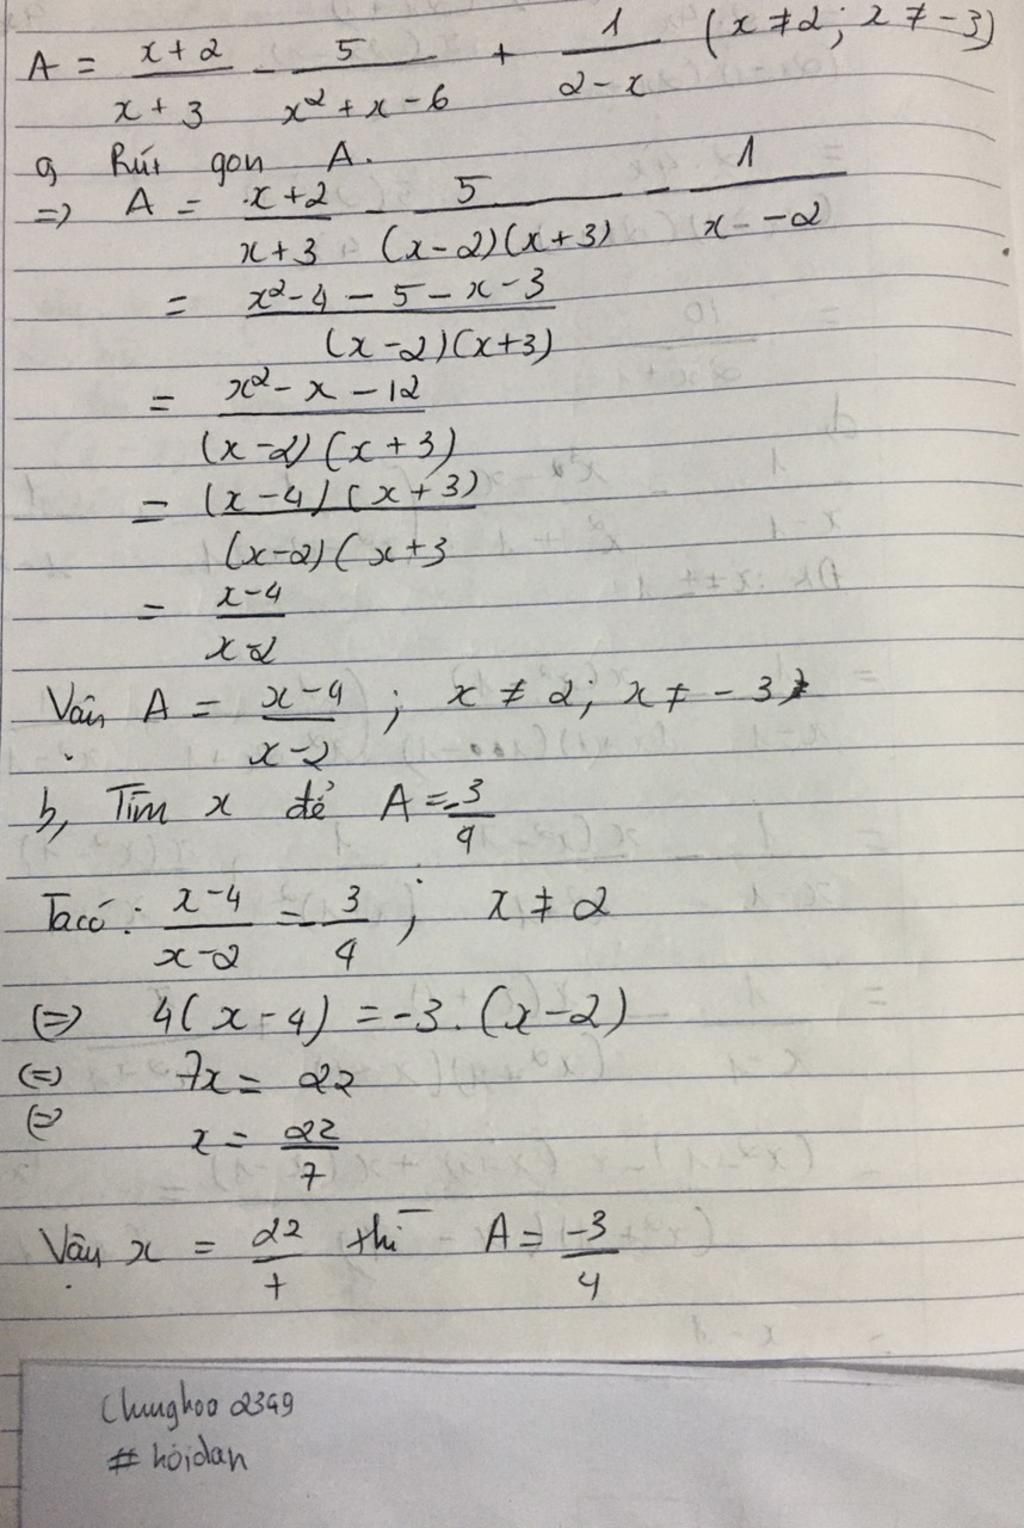 A = \frac{x+2}{x+3} - \frac{5}{x²+x-6} + \frac{1}{2-x} (x ≠ 2; x ≠ -3)
a, Rút gọn A.
=> A = \frac{x+2}{x+3} - \frac{5}{(x-2)(x+3)} - \frac{1}{x-2}
= \frac{x²-4-5-x-3}{(x-2)(x+3)}
= \frac{x²-x-12}{(x-2)(x+3)}
= \frac{(x-4)(x+3)}{(x-2)(x+3}
= \frac{x-4}{x-2}
Vậy A = \frac{x-4}{x-2} ; x ≠ 2; x ≠ -3
b, Tìm x để A = \frac{-3}{4}
Ta có: \frac{x-4}{x-2} = -\frac{3}{4} ; x ≠ 2
(=) 4(x-4) = -3.(x-2)
(=) 7x = 22
(=) x = \frac{22}{7}
Vậy x = \frac{22}{7} thì A = \frac{-3}{4}
Chunghoa2349
# hỏidan